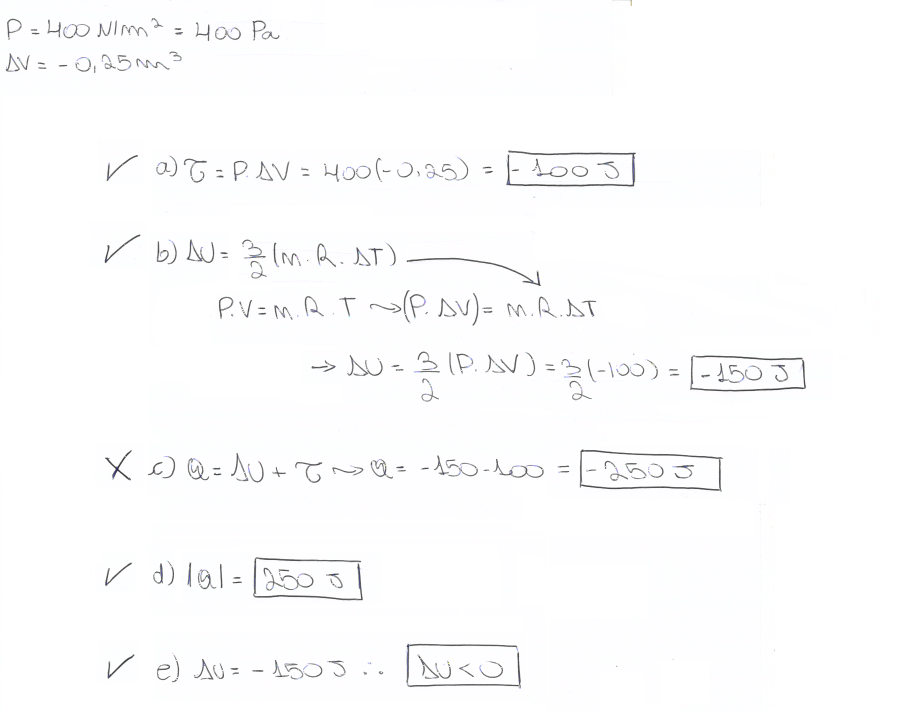 P = 400 N/m² = 400 Pa
ΔV = - 0,25 m³
✓ a) τ = P. ΔV = 400(-0,25) = - 100 J
✓ b) ΔU = 3/2 (m. R. ΔT)
P.V = m. R. T ⤳ (P. ΔV) = m.R.ΔT
→ ΔU = 3/2 (P. ΔV) = 3/2 (-100) = - 150 J
X c) Q = ΔU + τ ⤳ Q = -150 - 100 = - 250 J
✓ d) |Q| = 250 J
✓ e) ΔU = - 150 J ∴ ΔU < 0